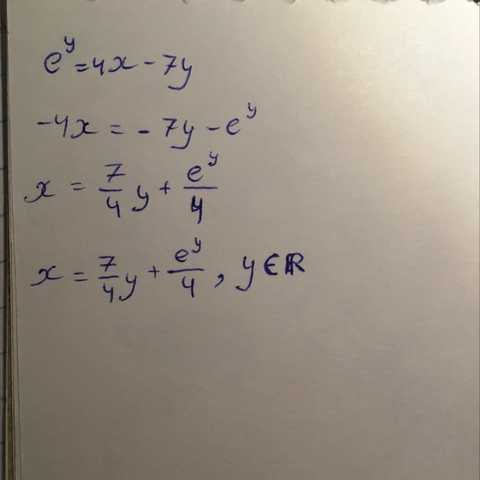 e^y = 4x - 7y
-4x = - 7y - e^y
x = 7/4 y + e^y/4
x = 7/4 y + e^y/4 , y ∈ ℝ